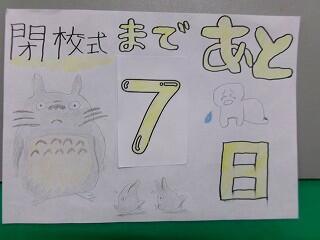 閉校式まであと
7
日